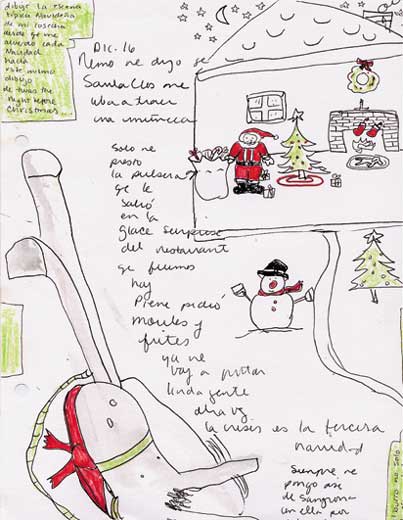 dibujé la escena
típica Navideña
de mi
desde qe me
acuerdo cada
Navidad
hacia
este mismo
dibujo
de twas the
night before
Christmas...
Dic. 16
Nemo me dijo qe
Santa Clos me
iba a traer
una muñeca
Solo me
presto
la pulsera
qe le
salió
en la
glace surprise
del restaurant
qe fuimos
hoy
Pierre pidió
moules y
frites
ya me
voy a
linda gente
otra vez
la crisis es la tercera
navidad
Siempre me
pongo asi
de
con ella por